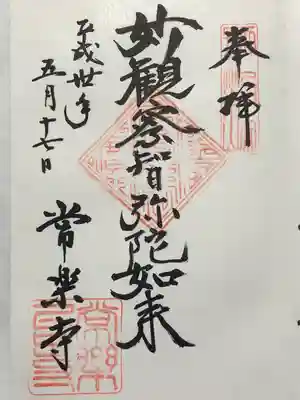 奉拝
妙観察智弥陀如来
平成丗年
五月十七日
常楽寺